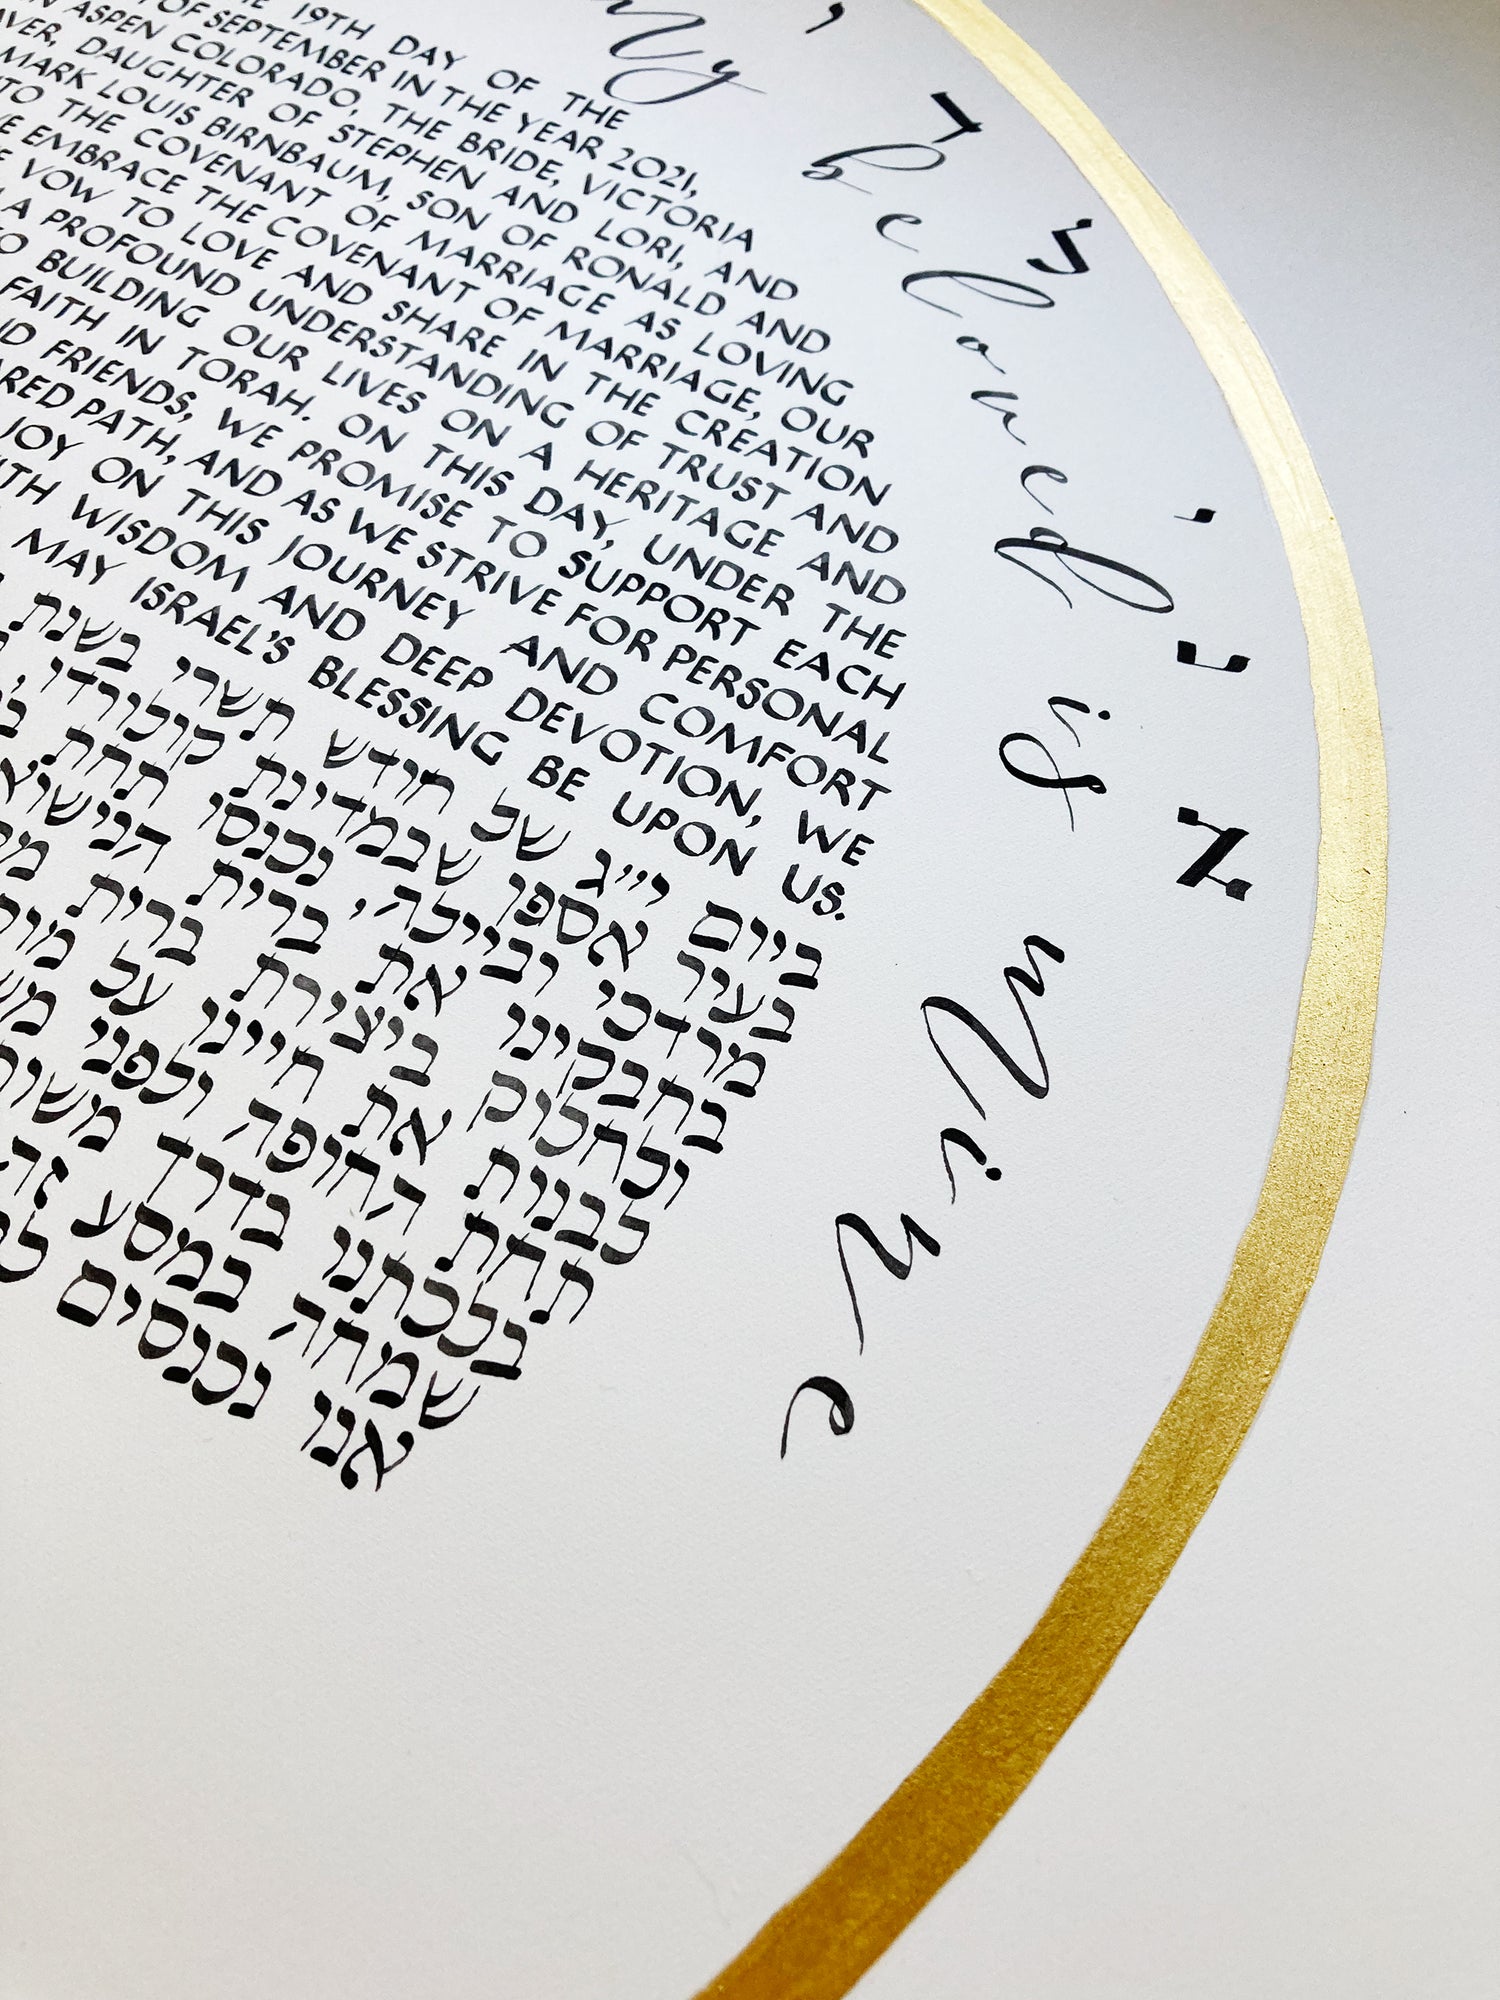 19TH DAY OF THE
OF SEPTEMBER IN THE YEAR 2021,
ASPEN COLORADO, THE BRIDE, VICTORIA
DAUGHTER OF STEPHEN AND LORI, AND
MARK LOUIS BIRNBAUM, SON OF RONALD AND
THE COVENANT OF MARRIAGE AS LOVING
EMBRACE THE COVENANT OF MARRIAGE, OUR
VOW TO LOVE AND SHARE IN THE CREATION
A PROFOUND UNDERSTANDING OF TRUST AND
BUILDING OUR LIVES ON A HERITAGE AND
FAITH IN TORAH. ON THIS DAY, UNDER THE
FRIENDS, WE PROMISE TO SUPPORT EACH
PATH, AND AS WE STRIVE FOR PERSONAL
JOY ON THIS JOURNEY AND COMFORT
WISDOM AND DEEP DEVOTION, WE
MAY ISRAEL'S BLESSING BE UPON US.
ביום י״ג של חודש תשרי בשנת
בעיר אספן שבמדינת קולורדו,
מרדכי וביילה, נכנסו תחת
בחבקינו את ברית
ולחלוק ביצירת ברית
לבנות את חיינו על
תחת החופה ולפני
בלכתנו בדרך
שמחה במסע
אנו נכנסים
My beloved is Mine
אני